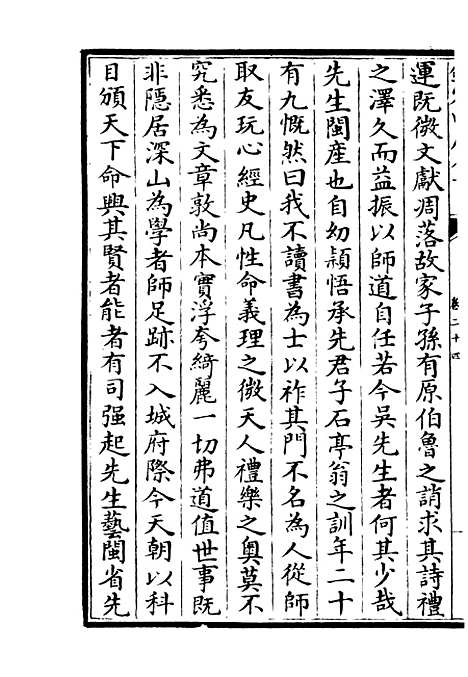 運既微文獻凋落故家子孫有原伯魯之誚求其詩禮
之澤久而益振以師道自任若今吳先生者何其少哉
先生閩産也自幼穎悟承先君子石亭翁之訓年二十
有九慨然曰我不讀書為士以祚其門不名為人從師
取友玩心經史凡性命義理之微天人禮樂之奥莫不
究悉為文章敦尚本實浮夸綺麗一切弗道值世事既
非隱居深山為學者師足跡不入城府際今天朝以科
目頒天下命與其賢者能者有司强起先生藝閩省先
卷二十四